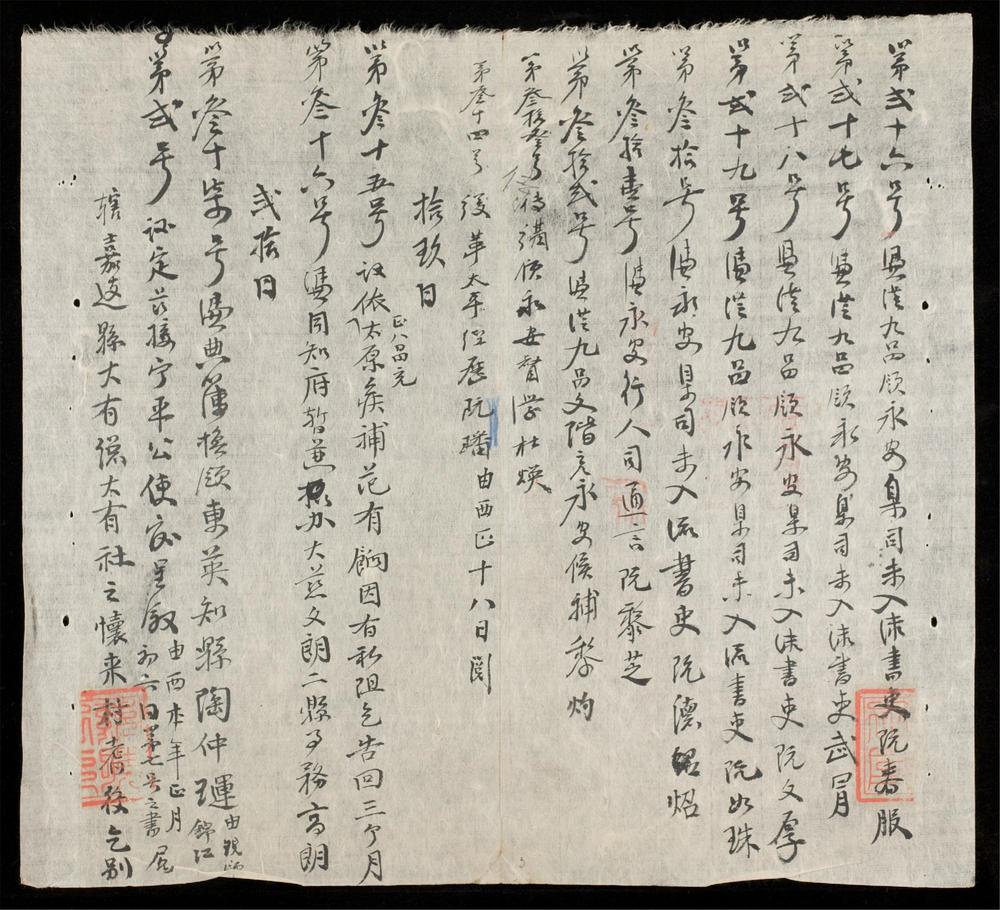 第弍十六号憑給九品頎永安臬司未入流書吏阮春服
第弍十七号憑給九品頎永安臬司未入流書吏武冐
第弍十八号憑給九品頎永安臬司未入流書吏阮文厚
第弍十九号憑給九品頎永安臬司未入流書吏阮如珠
第叁拾号憑永安臬司未入流書吏阮德炤
第叁拾壹号憑永安行人司通言阮黎芝
第叁拾弍号憑給九品文階充永安候補黎灼
第叁拾叁号待講領永安督学杜煥
第叁十四号後革太平經歷阮璠由西正十八日閱
拾玖日
第叁十五号議依太原候補范有餉因有私阻乞告回三个月
正八品充
第叁十六号憑同知府暫兼办大慈文朗二縣事務高朗
弍拾日
第叁十柒号憑典簿换領東英知縣陶仲璭由現 錦江
第弍号議定並接宁平公使商呈叙由西本年正月初六日第七号之書
轄嘉遠縣大有總大有社之懷来村耆役乞别